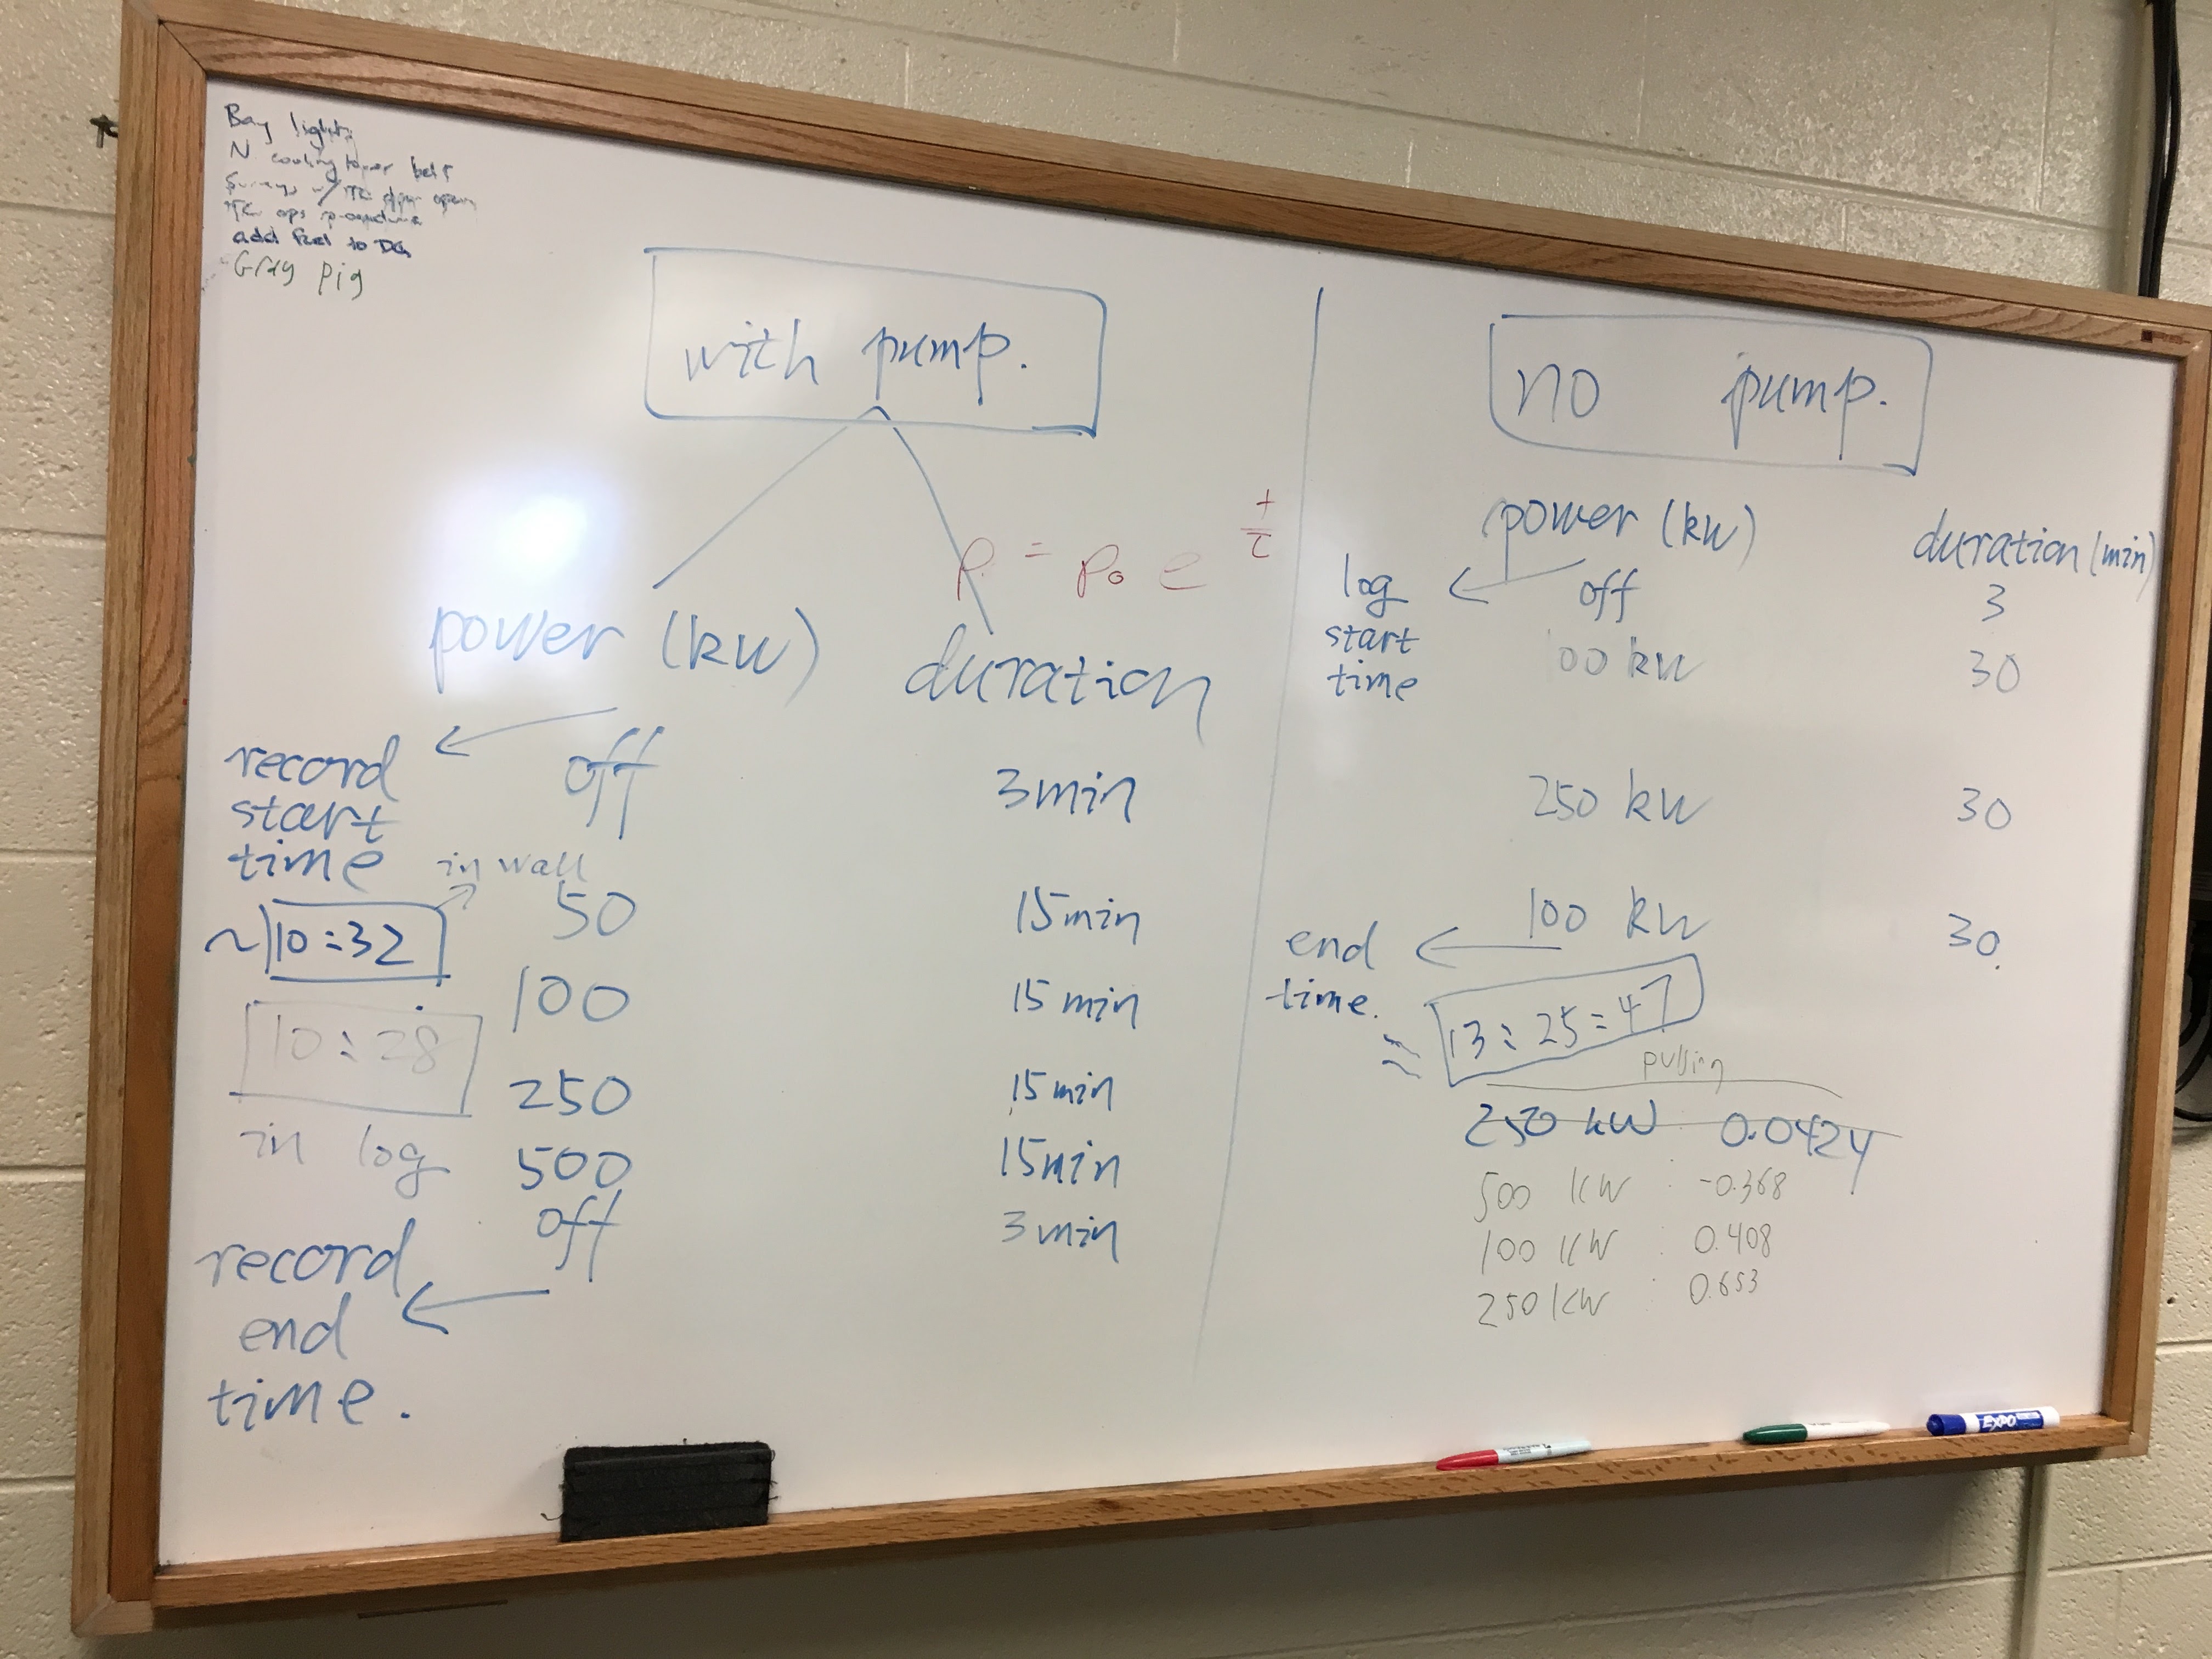 Bay lights
N cooling tower belt
Surveys w/ TC door open
TC ops procedure
add fuel to DG
Gray pig
with pump.
P = P₀ e t/τ
power (kw) duration
record start time
off 3min
in wall
~ 10:32
50 15min
100 15 min
10:28
in log
250 15 min
500 15min
off 3 min
record end time.
no pump.
power (kw) duration (min)
log start time
off 3
00 kw 30
250 kw 30
100 kw 30.
end time.
≈ 13:25:47
pulsing
250 kW 0.0424
500 KW : -0.368
100 KW : 0.408
250 KW : 0.653
EXPO